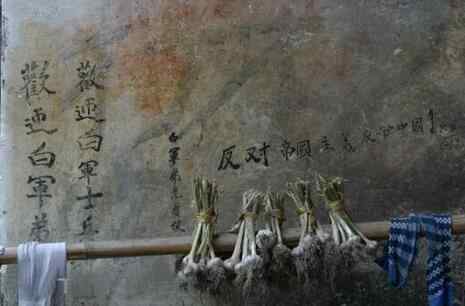 反对帝國主義瓜分中國
白軍
歡迎白軍士兵
歡迎白軍弟